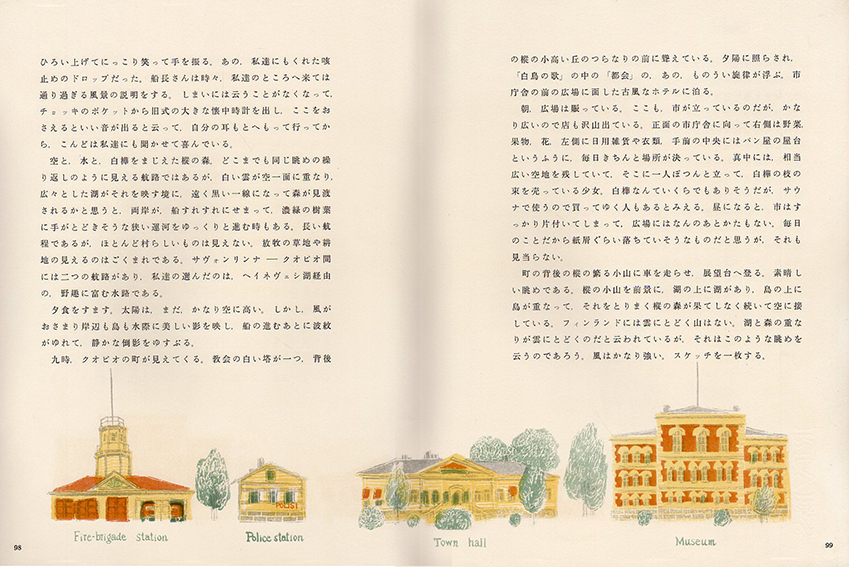 ひろい上げてにっこり笑って手を振る。あの，私達にもくれた咳
止めのドロップだった。船長さんは時々，私達のところへ来ては
通り過ぎる風景の説明をする。しまいには云うことがなくなって，
チョッキのポケットから旧式の大きな懐中時計を出し，ここをお
さえるといい音が出ると云って，自分の耳もとへもって行ってか
ら，こんどは私達にも聞かせて喜んでいる。
空と，水と，白樺をまじえた樅の森，どこまでも同じ眺めの繰
り返しのように見える航路ではあるが，白い雲が空一面に重なり，
広々とした湖がそれを映す境に，遠く黒い一線になって森が見渡
されるかと思うと，両岸が，船すれすれにせまって，濃緑の樹葉
に手がとどきそうな狭い運河をゆっくりと進む時もある。長い航
程であるが，ほとんど村らしいものは見えない。放牧の草地や耕
地の見えるのはごくまれである。サヴォンリンナ ― クオピオ間
には二つの航路があり，私達の選んだのは，ヘイネヴェシ湖経由
の，野趣に富む水路である。
夕食をすます。太陽は，まだ，かなり空に高い。しかし，風が
おさまり岸辺も島も水際に美しい影を映し，船の進むあとに波紋
がゆれて，静かな倒影をゆすぶる。
九時，クオピオの町が見えてくる。教会の白い塔が一つ，背後
の樅の小高い丘のつらなりの前に聳えている。夕陽に照らされ，
「白鳥の歌」の中の「都会」の，あの，ものうい旋律が浮ぶ。市
庁舎の前の広場に面した古風なホテルに泊る。
朝，広場は賑っている。ここも，市が立っているのだが，かな
り広いので店も沢山出ている。正面の市庁舎に向って右側は野菜，
果物，花，左側に日用雑貨や衣類，手前の中央にはパン屋の屋台
というふうに，毎日きちんと場所が決っている。真中には，相当
広い空地を残していて，そこに一人ぽつんと立って，白樺の枝の
束を売っている少女。白樺なんていくらでもありそうだが，サウ
ナで使うので買ってゆく人もあるとみえる。昼になると，市はす
っかり片付いてしまって，広場にはなんのあとかたもない。毎日
のことだから紙屑ぐらい落ちていそうなものだと思うが，それも
見当らない。
町の背後の樅の繁る小山に車を走らせ，展望台へ登る。素晴し
い眺めである。樅の小山を前景に，湖の上に湖があり，島の上に
島が重なって，それをとりまく樅の森が果てしなく続いて空に接
している。フィンランドには雲にとどく山はない。湖と森の重な
りが雲にとどくのだと云われているが，それはこのような眺めを
云うのであろう。風はかなり強い。スケッチを一枚する。
POLISI
Fire-brigade station
Police station
Town hall
Museum
98
99